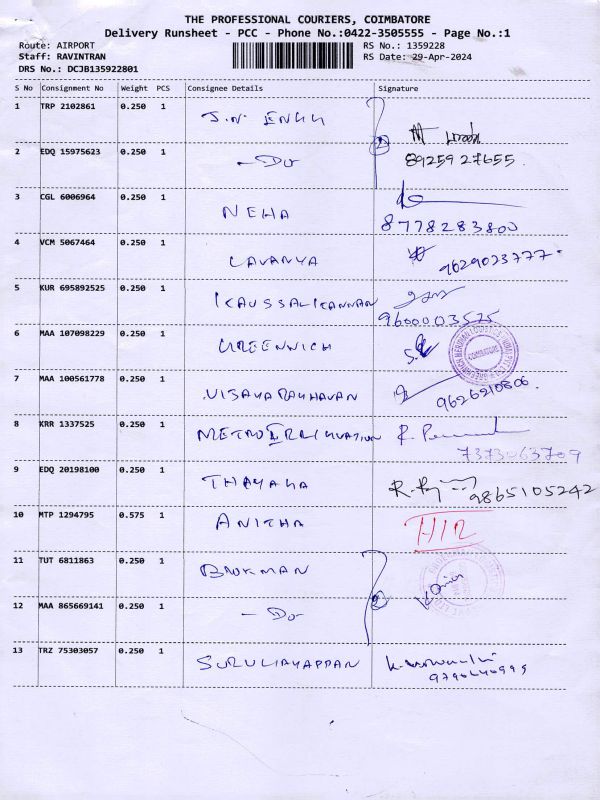 THE PROFESSIONAL COURIERS, COIMBATORE
Delivery Runsheet - PCC - Phone No.:0422-3505555 - Page No.:1
Route: AIRPORT
RS No.: 1359228
Staff: RAVINTRAN
RS Date: 29-Apr-2024
DRS No.: DCJB135922801
S No Consignment No Weight PCS Consignee Details Signature
1 TRP 2102861 0.250 1
2 EDQ 15975623 0.250 1 - Do 89259 27655.
3 CGL 6006964 0.250 1 NEHA 8778283800
4 VCM 5067464 0.250 1 LAVANYA 9629023777
5 KUR 695892525 0.250 1 KAUSSALIKANNAN 9600003575
6 MAA 107098229 0.250 1 GREENWICH COIMBATORE
7 MAA 100561778 0.250 1 VIJAYARAGHAVAN 9626210806.
8 KRR 1337525 0.250 1 7373063709
9 EDQ 20198100 0.250 1 9865105242
10 MTP 1294795 0.575 1 ANITHA
11 TUT 6811863 0.250 1
12 MAA 865669141 0.250 1 - Do
13 TRZ 75303057 0.250 1